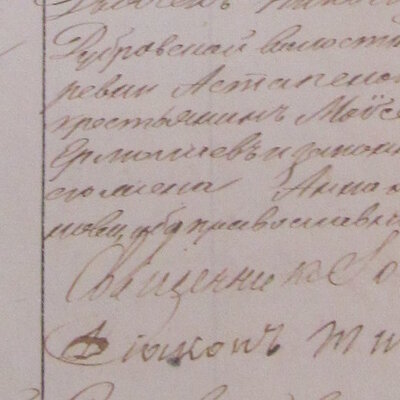 Дубровской волости
ревни Астапено
крестьянинъ Моѵсе
Ермолаевъ и законн
его жена Анна
оба православн
Священникъ
Діаконъ Ти